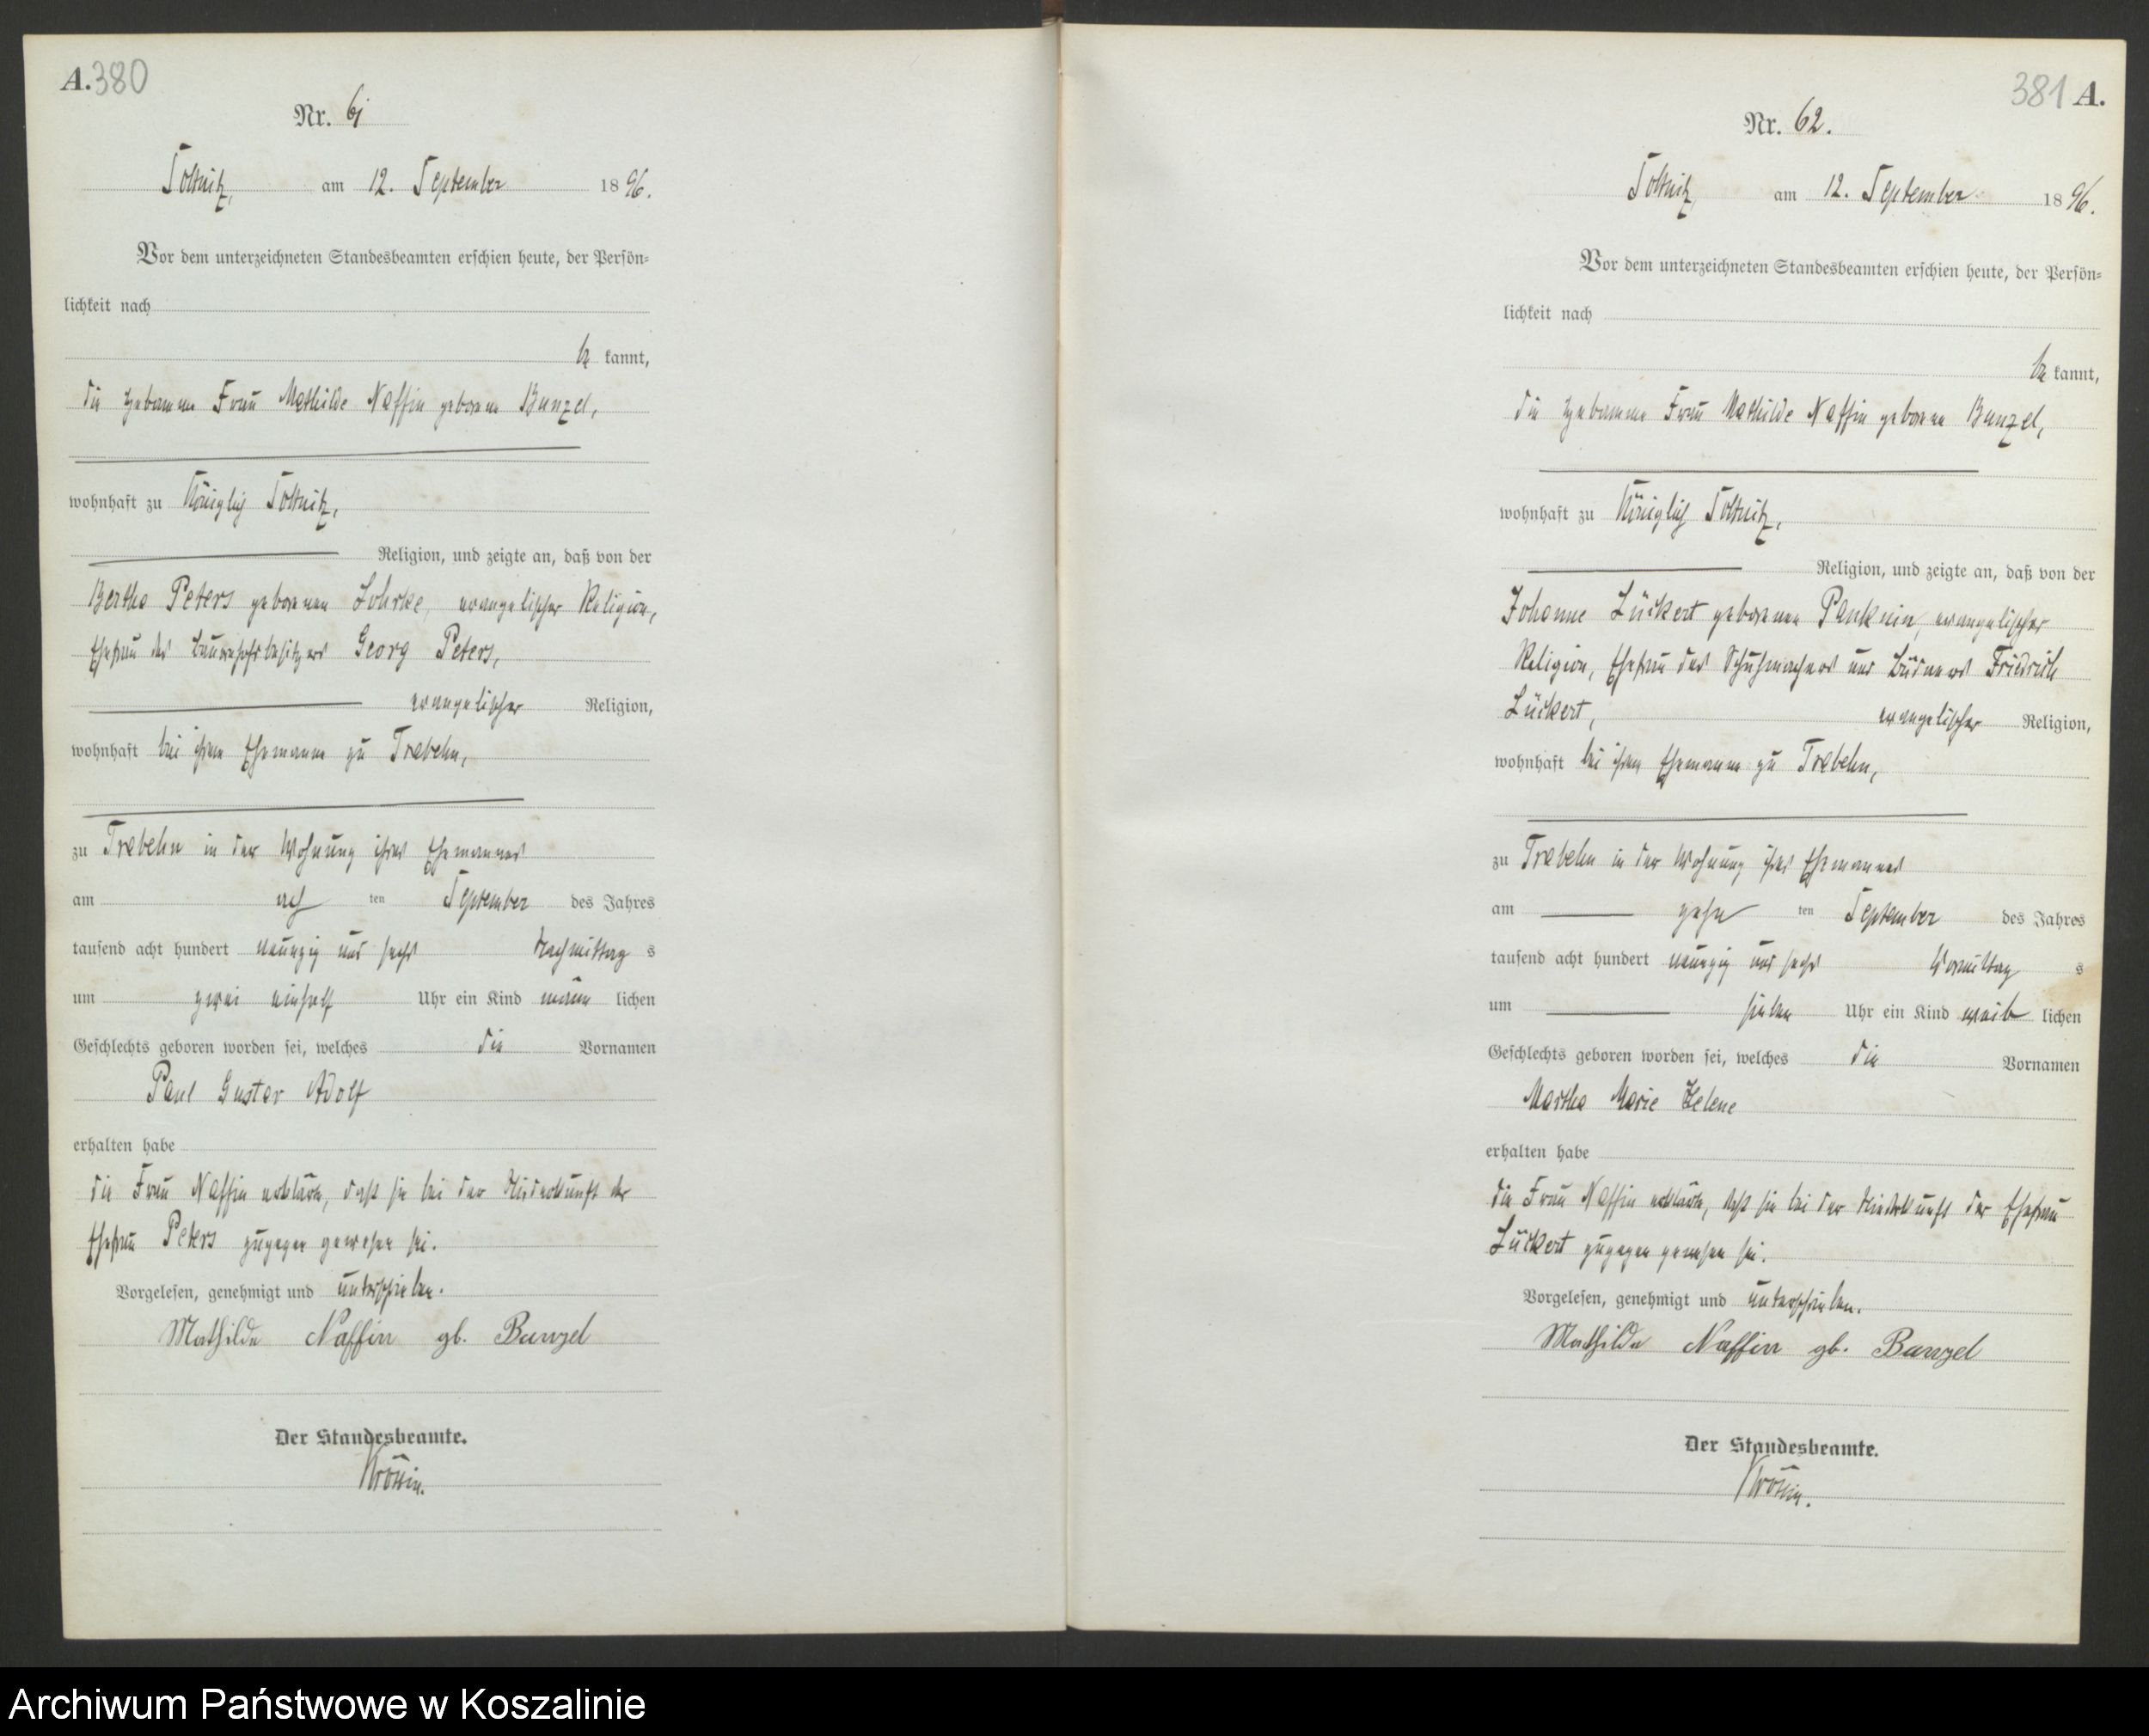 A. 380
Nr. 61
Soltnitz, am 12. September 1896.
Vor dem unterzeichneten Standesbeamten erschien heute, der Persön-
lichkeit nach
be kannt,
die Hebamme Frau Mathilde Naffin geborene Bunzel,
wohnhaft zu Königlich Soltnitz,
Religion, und zeigte an, daß von der
Bertha Peters geborenen Lohrke, evangelischer Religion,
Ehefrau des Bauerhofsbesitzers Georg Peters,
evangelischer Religion,
wohnhaft bei ihrem Ehemanne zu Trabehn,
zu Trabehn in der Wohnung ihres Ehemannes
am acht ten September des Jahres
tausend acht hundert neunzig und sechs Nachmittag s
um zwei einhalb Uhr ein Kind männ lichen
Geschlechts geboren worden sei, welches die Vornamen
Paul Gustav Adolf
erhalten habe
die Frau Naffin erklärte, daß sie bei der Niederkunft der
Ehefrau Peters zugegen gewesen sei.
Vorgelesen, genehmigt und unterschrieben.
Mathilde Naffin gb. Bunzel
Der Standesbeamte.
381 A.
Nr. 62.
Soltnitz, am 12. September 1896.
Vor dem unterzeichneten Standesbeamten erschien heute, der Persön-
lichkeit nach
be kannt,
die Hebamme Frau Mathilde Naffin geborene Bunzel,
wohnhaft zu Königlich Soltnitz,
Religion, und zeigte an, daß von der
Johanne Lückert geborenen Panknin, evangelischer
Religion, Ehefrau des Schuhmachers und Büdners Friedrich
Lückert, evangelischer Religion,
wohnhaft bei ihrem Ehemanne zu Trabehn,
zu Trabehn in der Wohnung ihres Ehemannes
am zehn ten September des Jahres
tausend acht hundert neunzig und sechs Vormittag s
um sieben Uhr ein Kind weib lichen
Geschlechts geboren worden sei, welches die Vornamen
Martha Marie Helene
erhalten habe
die Frau Naffin erklärte, daß sie bei der Niederkunft der Ehefrau
Lückert zugegen gewesen sei.
Vorgelesen, genehmigt und unterschrieben.
Mathilde Naffin gb. Bunzel
Der Standesbeamte.
Archiwum Państwowe w Koszalinie